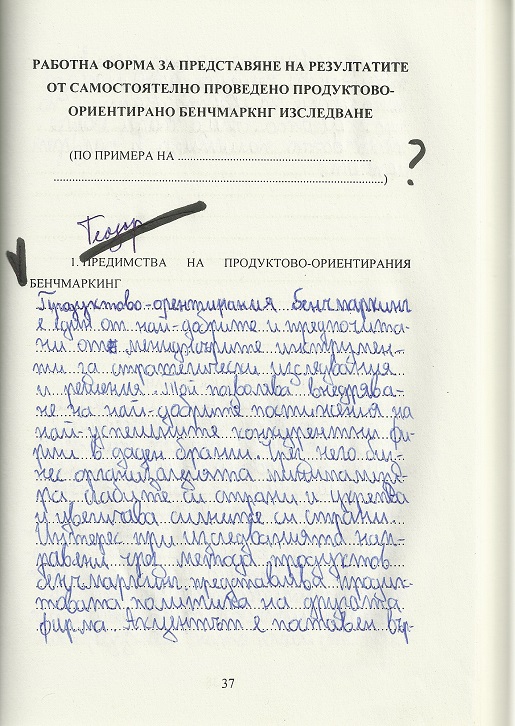 РАБОТНА ФОРМА ЗА ПРЕДСТАВЯНЕ НА РЕЗУЛТАТИТЕ
ОТ САМОСТОЯТЕЛНО ПРОВЕДЕНО ПРОДУКТОВО-
ОРИЕНТИРАНО БЕНЧМАРКНГ ИЗСЛЕДВАНЕ
(ПО ПРИМЕРА НА ..........................................................
....................................................................................................) ?
1. ПРЕДИМСТВА НА ПРОДУКТОВО-ОРИЕНТИРАНИЯ
БЕНЧМАРКИНГ
Продуктово-орентирания бенчмаркинг
е един от най-добрите и предпочита-
ни от мениджърите инструмен-
ти за стратегически изследвания
и решения. Той позволява внедрява-
не на най-добрите постижения на
най-успешните конкурентни фи-
рми в даден бранш. Чрез него биз-
нес организацията минимизи-
ра слабите си страни и укрепва
и увеличава силните си страни.
Интерес при изследванията нап-
равени чрез метода продуктов
бенчмаркинг представлява продук-
товата политика на другата
фирма. Акцентът е поставен вър-
37